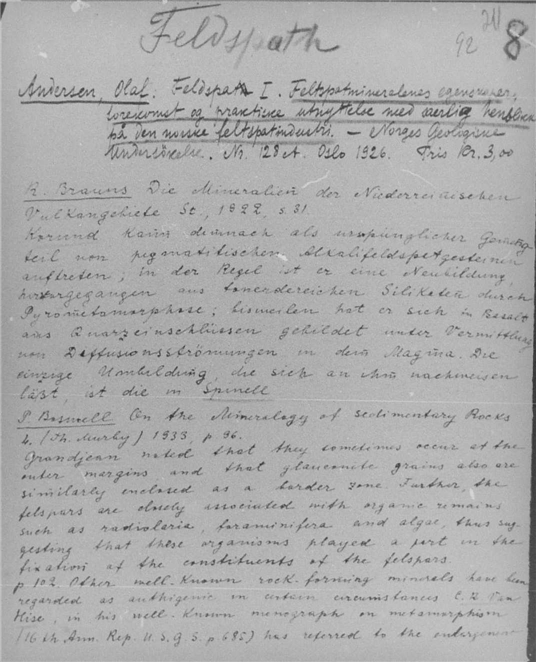 Feldspath
92
8
Andersen, Olaf: Feldspath I. Feltspatmineralenes egenskaper,
forekomst og praktiske utnyttelse med særlig henblikk
på den norske feltspatindustri. — Norges Geologiske
Undersökelse. Nr. 128A. Oslo 1926. Pris Kr. 3,00
R. Brauns Die Mineralien der Niederreinischen
Vulkangebiete St., 1922, s. 31.
Korund kann demnach als ursprünglicher Gemeng-
teil von pegmatitischen Alkalifeldspatgesteinen
auftreten; in der Regel ist er eine Neubildung,
hervorgegangen aus tonerdereichen Silikaten durch
Pyrometamorphose; bisweilen hat er sich in Basalt
aus Quarzeinschlüssen gebildet unter Vermittlung
von Diffusionsströmungen in dem Magma. Die
einzige Umbildung, die sich an ihm nachweisen
läßt, ist die in Spinell
P. Boswell On the Mineralogy of Sedimentary Rocks
L. (Th. Murby) 1933, p 96.
Grandjean noted that they sometimes occur at the
outer margins and that glauconite grains also are
similarly enclosed as a border zone. Further, the
felspars are closely associated with organic remains
such as radiolaria, foraminifera and algae, thus sug-
gesting that these organisms played a part in the
fixation of the constituents of the felspars.
p 102. Other well-known rock-forming minerals have been
regarded as authigenic in certain circumstances C. R. Van
Hise, in his well-known monograph on metamorphism
(16th Ann. Rep. U.S.G.S. p 685) has referred to the enlargement